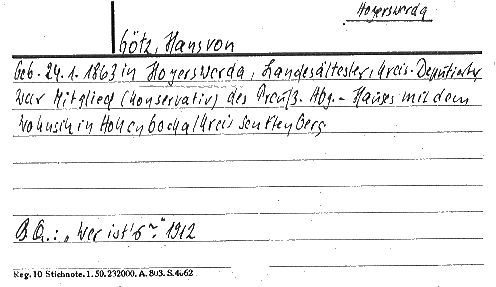 Hoyerswerda
Götz, Hans von
Geb. 24.1.1863 in Hoyerswerda, Landesältester, Kreis-Deputierter
War Mitglied (Konservativ) des Preuß. Abg.-Hauses mit dem
Wohnsitz in Hohenbocka/Kreis Senftenberg
B.Q.: „Wer ist's" 1912
Reg. 10 Stichnote. 1. 50. 232000. A. 803. S. 4662